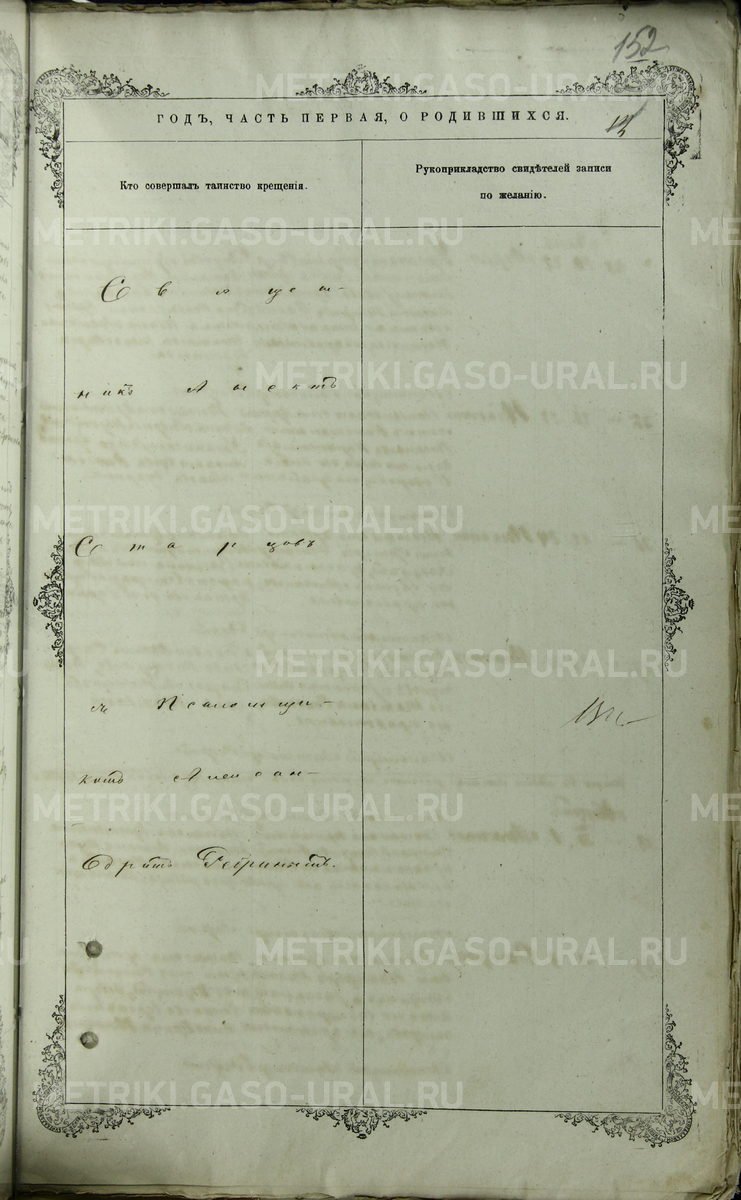 152
ГОДЪ, ЧАСТЬ ПЕРВАЯ, О РОДИВШИХСЯ.
Кто совершалъ таинство крещенія.
Рукоприкладство свидѣтелей записи
по желанію.
Священ-
никъ
Старцовъ
съ Псаломщи-
комъ Алексан-
дромъ
METRIKI.GASO-URAL.RU